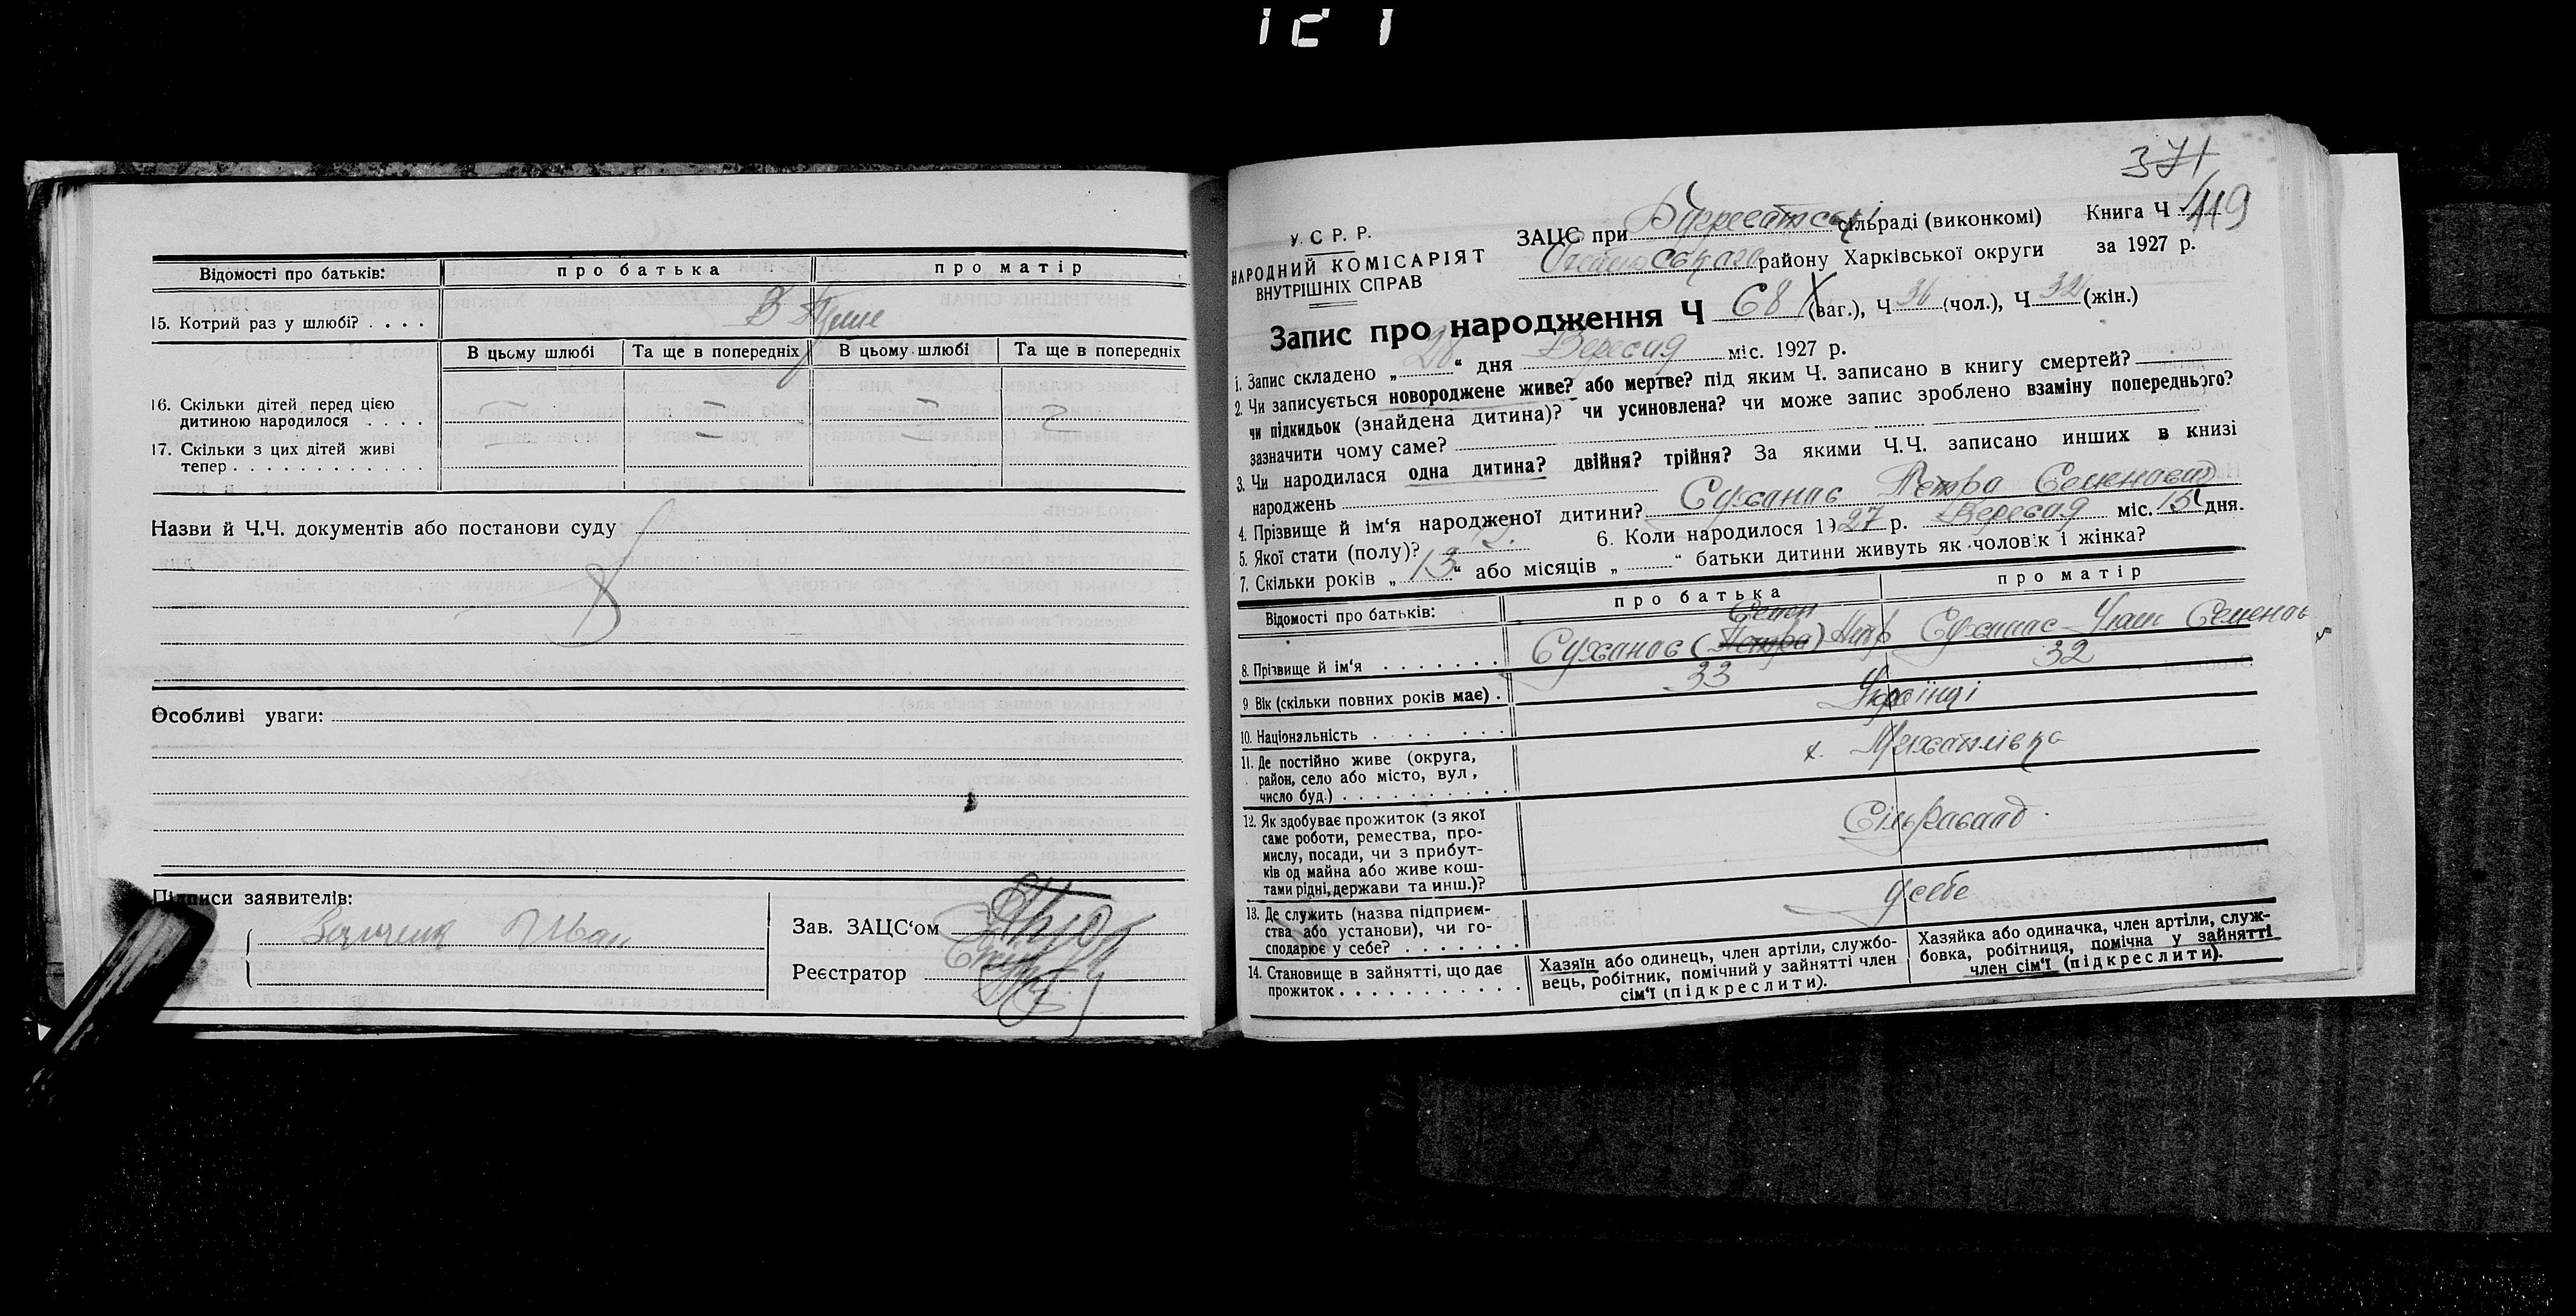 121
Відомості про батьків: про батька про матір
15. Котрий раз у шлюбі? . . . .
В цьому шлюбі Та ще в попередніх В цьому шлюбі Та ще в попередніх
16. Скільки дітей перед цією
дитиною народилося . . . . — — —
17. Скільки з цих дітей живі — —
тепер . . . . . . . . . . . .
Назви й Ч.Ч. документів або постанови суду
Особливі уваги:
Підписи заявителів:
Іван
Зав. ЗАЦС‘ом
Реєстратор
371
119
У. С Р. Р.
НАРОДНИЙ КОМІСАРІЯТ
ВНУТРІШНІХ СПРАВ
ЗАЦС при сільраді (виконкомі) Книга Ч
району Харківської округи за 1927 р.
Запис про народження Ч 68 (заг.), Ч 36 (чол.), Ч 32 (жін.)
1. Запис складено „28“ дня Вересня міс. 1927 р.
2. Чи записується новороджене живе? або мертве? під яким Ч. записано в книгу смертей?
чи підкидьок (знайдена дитина)? чи усиновлена? чи може запис зроблено взаміну попереднього?
зазначити чому саме?
3. Чи народилася одна дитина? двійня? трійня? За якими Ч.Ч. записано инших в книзі
народжень
4. Прізвище й ім‘я народженої дитини? Суханов Петро Семенович
5. Якої стати (полу)? 6. Коли народилося 1927 р. Вересня міс. 15 дня.
7. Скільки років „13“ або місяців „ “ батьки дитини живуть як чоловік і жінка?
Відомості про батьків: про батька про матір
Семен
8. Прізвище й ім‘я . . . . . . . Суханов (Петро)
9 Вік (скільки повних років має) . 33 32
10. Національність . . . . . . . Українці
11. Де постійно живе (округа,
район, село або місто, вул., х. Михайлівка
число буд.) . . . . . . . . . .
12. Як здобуває прожиток (з якої
саме роботи, ремества, про-
мислу, посади, чи з прибут-
ків од майна або живе кош-
тами рідні, держави та инш.)?
13. Де служить (назва підприєм- у себе
ства або установи), чи го-
сподарює у себе? . . . . . . .
14. Становище в зайнятті, що дає
прожиток . . . . . . . . . . .
Хазяїн або одинець, член артіли, службо-
вець, робітник, помічний у зайнятті член
сім‘ї (підкреслити).
Хазяйка або одиначка, член артіли, служ-
бовка, робітниця, помічна у зайнятті
член сім‘ї (підкреслити).